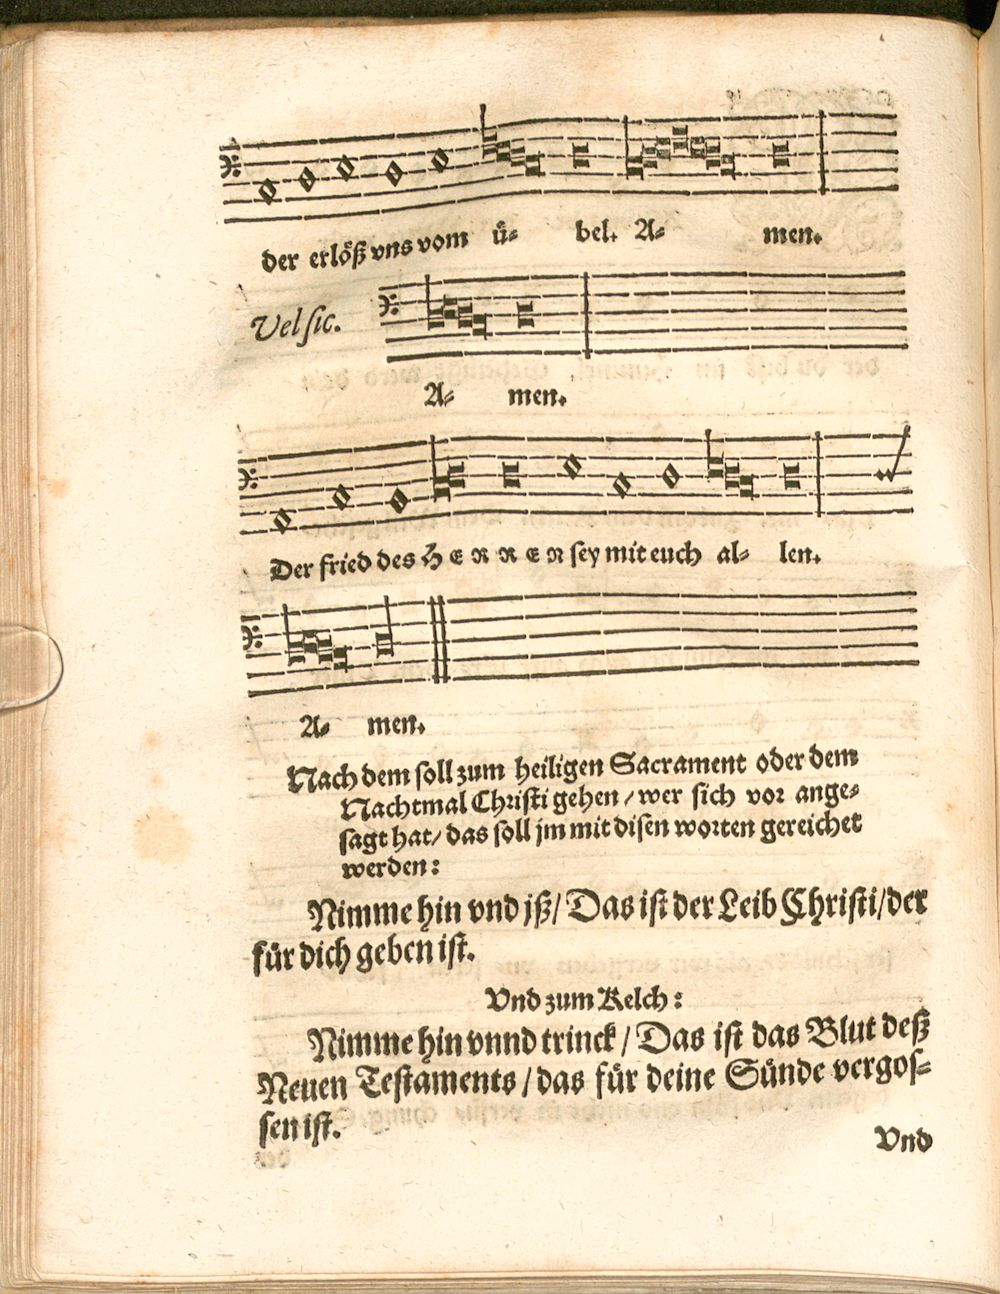 der erlöß vns vom ü⸗ bel. A⸗ men.
Vel sic.
A⸗ men.
Der fried des HERREN sey mit euch al⸗ len.
A⸗ men.
Nach dem soll zum heiligen Sacrament oder dem
Nachtmal Christi gehen / wer sich vor ange⸗
sagt hat / das soll jm mit disen worten gereichet
werden:
Nimme hin vnd jß / Das ist der Leib Christi / der
für dich geben ist.
Vnd zum Kelch:
Nimme hin vnnd trinck / Das ist das Blut deß
Neuen Testaments / das für deine Sünde vergos⸗
sen ist.
Vnd